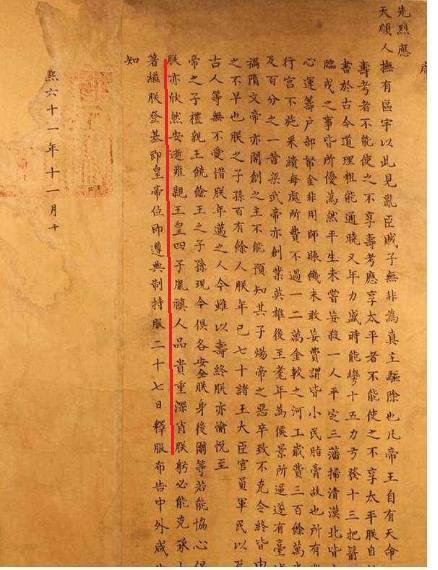 先烈應
天順人撫有區宇以此見亂臣賊子無非為真主驅除也凡帝王自有天命
壽考者不能使之不享壽考應享太平者不能使之不享太平朕自
書於古今道理粗能通曉又年力盛時能彎十五力弓發十三把箭
臨戎之事皆所優為然平生未嘗妄殺一人平定三藩掃清漠北皆
心運籌戶部帑金非用師賑饑未敢妄費謂皆小民脂膏故也所有
行宮不施采繢每處所費不過一二萬金較之河工歲費三百餘萬
及百分之一昔梁武帝亦創業英雄後至耄年為侯景所逼遂有臺
禍隋文帝亦開創之主不能預知其子煬帝之惡卒致不克令終皆由
之不早也朕之子孫百有餘人朕年已七十諸王大臣官員軍民以
古人等無不愛惜朕年邁之人今雖以壽終朕亦愉悅至
帝之子禮親王饒餘王之子孫現今俱各安全朕身後爾等若能協心
朕亦欣然安逝雍親王皇四子胤禛人品貴重深肖朕躬必能克承
著繼朕登基即皇帝位即遵典制持服二十七日釋服布告中外咸
知
熙六十一年十一月十